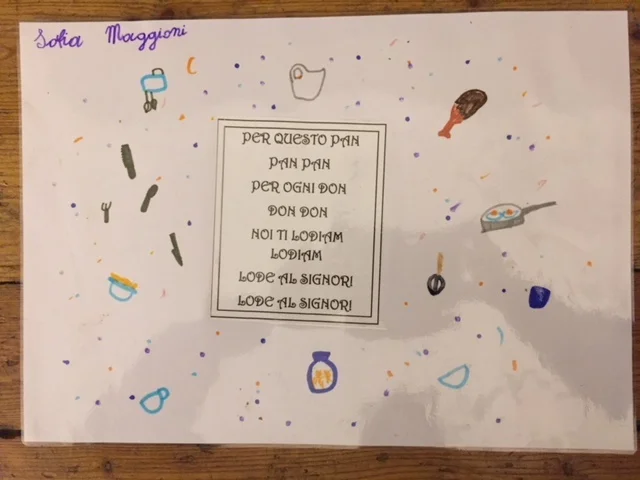 Sofia Maggioni
PER QUESTO PAN
PAN PAN
PER OGNI DON
DON DON
NOI TI LODIAM
LODIAM
LODE AL SIGNOR!
LODE AL SIGNOR!